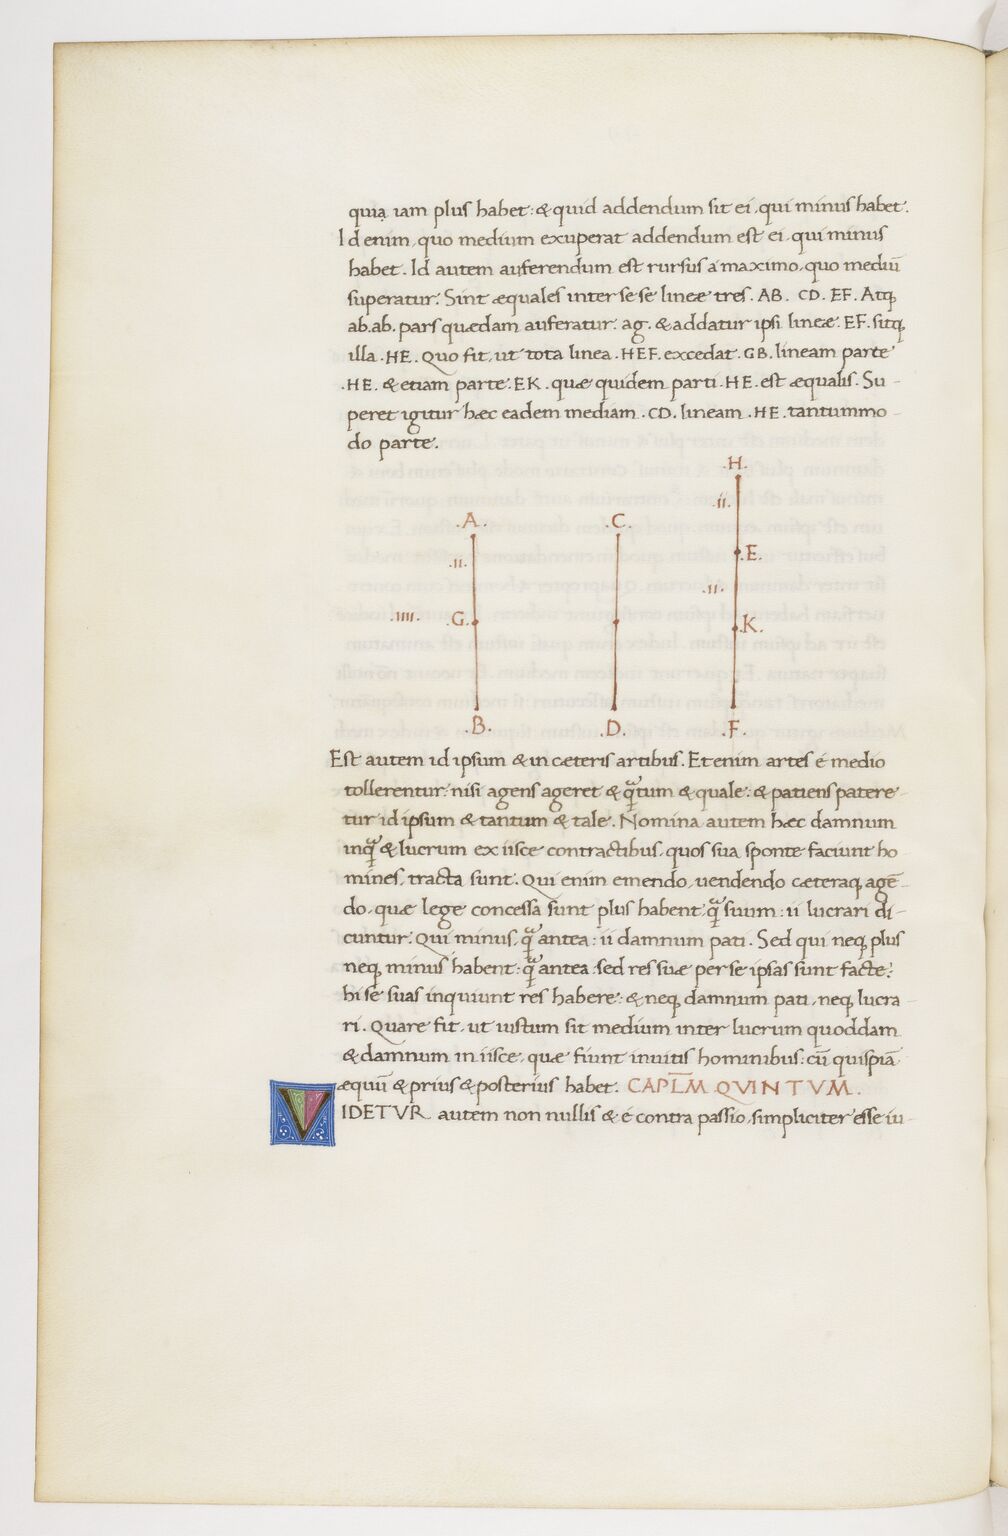 quia iam plus habet: & quid addendum sit ei, qui minus habet.
Id enim, quo medium exuperat addendum est ei, qui minus
habet. Id autem auferendum est rursus a maximo, quo mediū
superatur. Sint æquales inter se se lineæ tres. AB. CD. EF. Atq;
ab.ab. pars quædam auferatur. ag. & addatur ipsi lineæ. EF. sitq;
illa .HE. Quo fit, ut tota linea .HEF. excedat .GB. lineam parte
.HE. & etiam parte .EK. quæ quidem parti .HE. est æqualis. Su-
peret igitur hæc eadem mediam .CD. lineam .HE. tantummo-
do parte.
.H.
.ii.
.A. .C.
.E.
.ii.
.ii.
.iiii. .G. .K.
.B. .D. .F.
Est autem id ipsum & in cæteris artibus. Etenim artes é medio
tollerentur: nisi agens ageret & q̃tum & quale: & patiens patere-
tur id ipsum & tantum & tale. Nomina autem hæc damnum
inq̃ & lucrum ex iisce contractibus, quos sua sponte faciunt ho
mines, tracta sunt. Qui enim emendo, uendendo cæteraq; agē-
do, quæ lege concessa sunt plus habent, q̃ suum: ii lucrari di-
cuntur. Qui minus, q̃ antea: ii damnum pati. Sed qui neq; plus
neq; minus habent: q̃ antea: sed res suæ per se ipsas sunt factæ:
hi se suas inquiunt res habere: & neq; damnum pati, neq; lucra-
ri. Quare fit, ut iustum sit medium inter lucrum quoddam
& damnum in iisce, quæ fiunt inuitis hominibus: cū quispiā
æquū & prius & posterius habet. CAPL̄M QVINTVM.
VIDETVR autem non nullis & é contra passio, simpliciter esse iu-